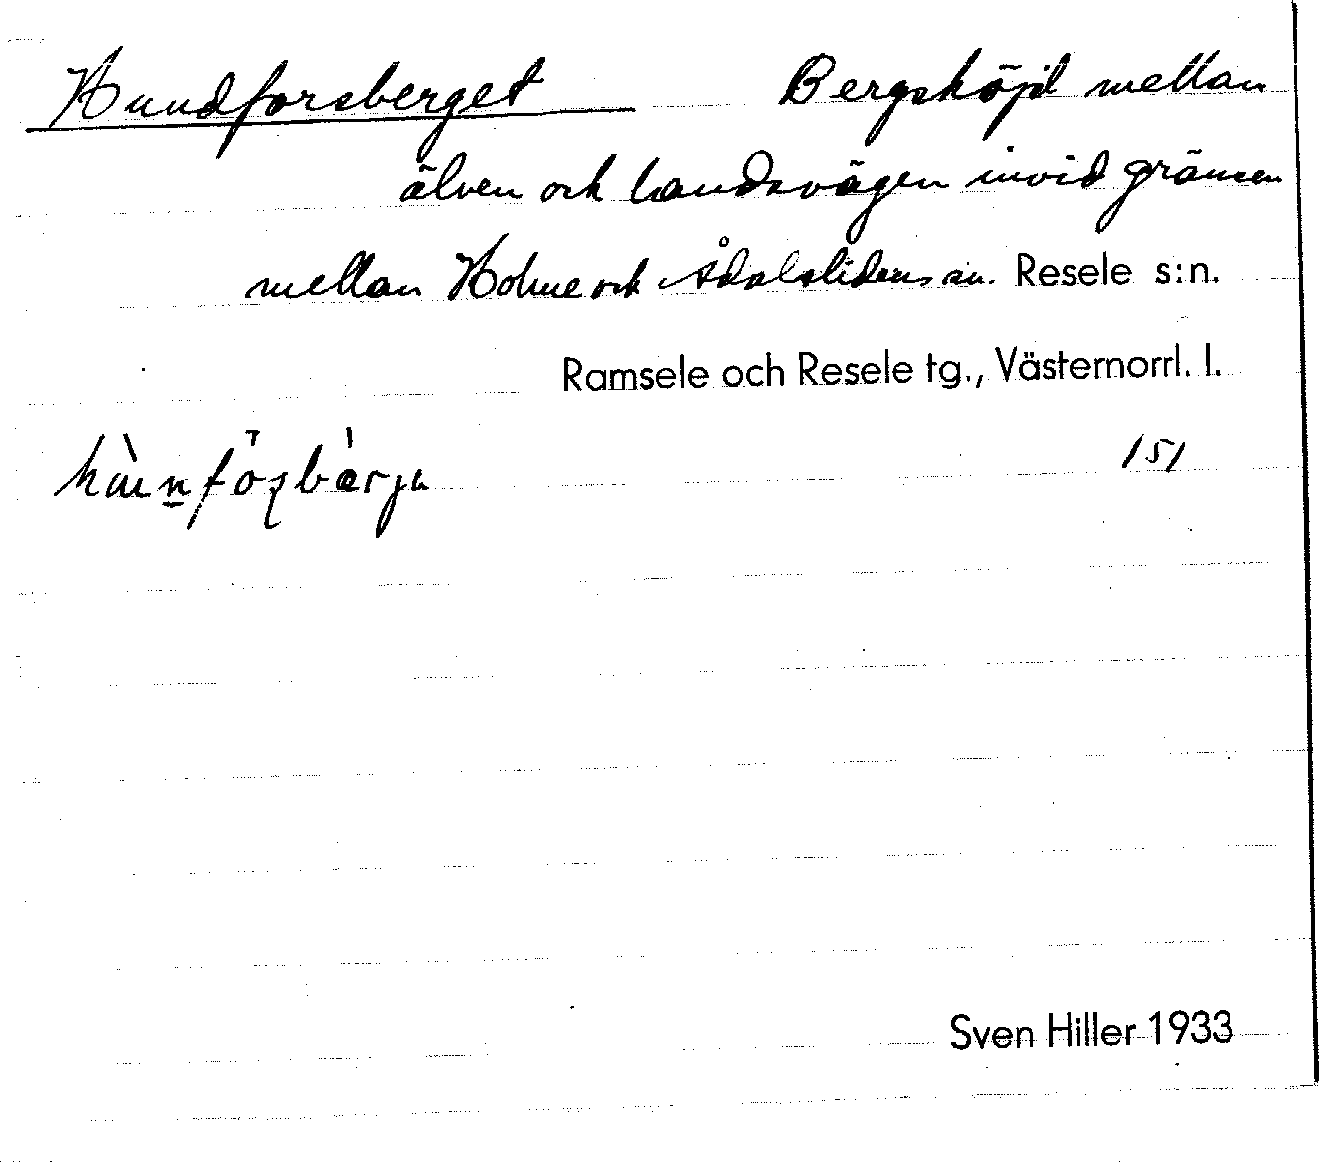 Hundforsberget Bergshöjd mellan
älven och landsvägen invid gränsen
mellan Holme och Ådalslidens sn. Resele s:n.
Ramsele och Resele tg., Västernorrl. l.
151
Sven Hiller 1933